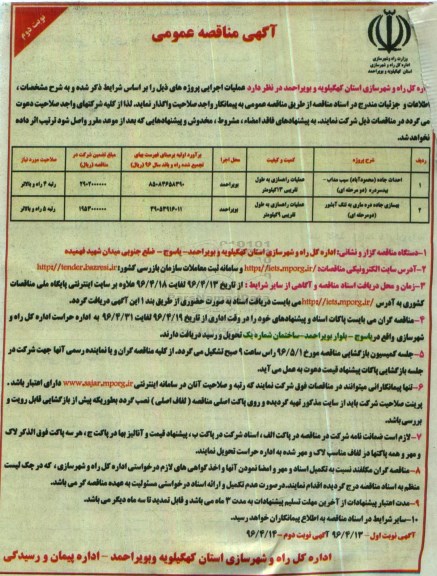 نوبت دوم
آگهی مناقصه عمومی
وزارت راه و شهرسازی
اداره کل راه و شهرسازی
استان کهگیلویه و بویراحمد
اداره کل راه و شهرسازی استان کهگیلویه و بویراحمد در نظر دارد عملیات اجرایی پروژه های ذیل را بر اساس شرایط ذکر شده و به شرح مشخصات ،
اطلاعات و جزئیات مندرج در اسناد مناقصه از طریق مناقصه عمومی به پیمانکار واجد صلاحیت واگذار نماید. لذا از کلیه شرکتهای واجد صلاحیت دعوت
می گردد در مناقصات ذیل شرکت نمایند. به پیشنهادهای فاقد امضاء ، مشروط ، مخدوش و پیشنهادهایی که بعد از موعد مقرر واصل شود ترتیب اثر داده
نخواهد شد.
ردیف شرح پروژه کمیت و کیفیت محل اجرا برآورد اولیه برمبنای فهرست بهای تجمیع شده راه و باند سال ۹۶ (ریال) مبلغ تضمین شرکت در مناقصه (ریال) صلاحیت مورد نیاز
۱ احداث جاده (محمودآباد) سیب مداب - (دو مرحله ای) عملیات راهسازی به طول تقریبی ۳کیلومتر بویراحمد ۸۵۰۸۳۶۵۸۳۹۰ ۲۹۰۲۰۰۰۰۰۰ رتبه ۴ راه و بالاتر
۲ بهسازی جاده دره ماری به تنگ آبشور (دو مرحله ای) عملیات راهسازی به طول تقریبی کیلومتر بویراحمد ۳۹۰۵۳۹۱۶۰۱۱ ۱۹۵۳۰۰۰۰۰۰ رتبه ۵ راه و بالاتر
۱-دستگاه مناقصه گزار و نشانی: اداره کل راه و شهرسازی استان کهگیلویه و بویراحمد– یاسوج - ضلع جنوبی میدان شهید فهمیده
۲-آدرس سایت الکترونیکی مناقصات: http://iets.mporg.ir/ و سامانه ثبت معاملات سازمان بازرسی کشور: http://tender.bazresi.ir
۳-زمان و محل دریافت اسناد مناقصه و آگاهی از سایر شرایط : از تاریخ ۹۶/۴/۱۳ لغایت ۹۶/۴/۱۸ علاوه بر سایت اینترنتی پایگاه ملی مناقصات
کشوری به آدرس http://iets.mporg.ir/ می بایست دریافت اسناد به صورت حضوری از طریق بند ۱ این آگهی دریافت گردد.
۴-مناقصه گران می بایست پاکات اسناد و پیشنهادهای خود را در وقت اداری از تاریخ ۹۶/۴/۱۹ لغایت ۹۶/۴/۳۱ به اداره حراست اداره کل راه و
شهرسازی واقع در یاسوج – بلوار بویراحمد –ساختمان شماره یک تحویل و رسید دریافت دارند.
۵-جلسه کمیسیون بازگشایی مناقصه مورخ ۹۶/۵/۱ راس ساعت ۹ صبح تشکیل می گردد. از کلیه مناقصه گران و یا نماینده رسمی آنها جهت شرکت در
جلسه بازگشایی پاکات پیشنهاد قیمت دعوت به عمل می آید.
۶-تنها پیمانکارانی میتوانند در مناقصات فوق شرکت نمایند که رتبه و صلاحیت آنان در سامانه اینترنتی www.sajar.mporg.ir دارای اعتبار باشد .
پرینت صلاحیت شرکت باید از سایت مذکور تهیه گردیده و روی پاکت اصلی مناقصه ( لفاف اصلی ) نصب گردد بطوریکه پیش از بازگشایی قابل رویت و
بررسی باشد.
۷-لازم است ضمانت نامه شرکت در مناقصه در پاکت الف ، اسناد شرکت در پاکت ب ، پیشنهاد قیمت و آنالیز بها در پاکت ج ، هر سه پاکت فوق الذکر لاک
و مهر و همه پاکتها در لفاف مناسب لاک و مهر شده به اداره حراست تحویل نمایند.
۸-مناقصه گران مکلفند نسبت به تکمیل اسناد و مهر و امضا نمودن آنها و اخذ گواهی های لازم درخواستی اداره کل راه و شهرسازی ، که در چک لیست
منظم به اسناد مناقصه درج گردیده اقدام نمایند. درصورت عدم تکمیل و ارائه اسناد درخواستی مسئولیت به عهده مناقصه گر می باشد.
۹-مدت اعتبار پیشنهادات از آخرین مهلت تسلیم پیشنهادات به مدت ۳ ماه می باشد و قابل تمدید تا سه ماه دیگر می باشد.
۱۰-سایر شرایط در اسناد مناقصه به اطلاع پیمانکاران خواهد رسید.
آگهی نوبت اول - ۹۶/۴/۱۳ آگهی نوبت دوم - ۹۶/۴/۱۴
اداره کل راه و شهرسازی استان کهگیلویه وبویراحمد - اداره پیمان و رسیدگی